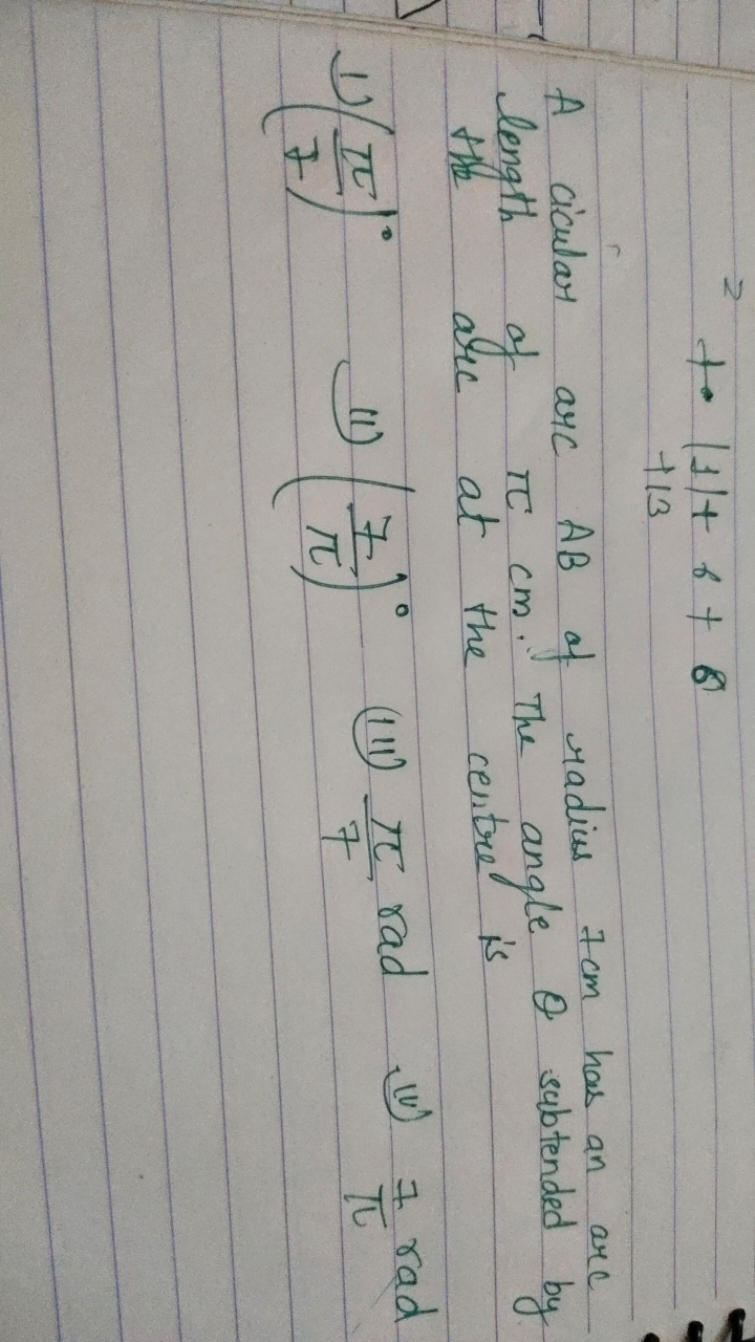 A cicular arc AB of radius 7cm has an arc
length of π cm. The angle θ subtended by
the arc at the centre is
i) (π/7)° ii) (7/π)° (iii) π/7 rad iv) 7/π rad